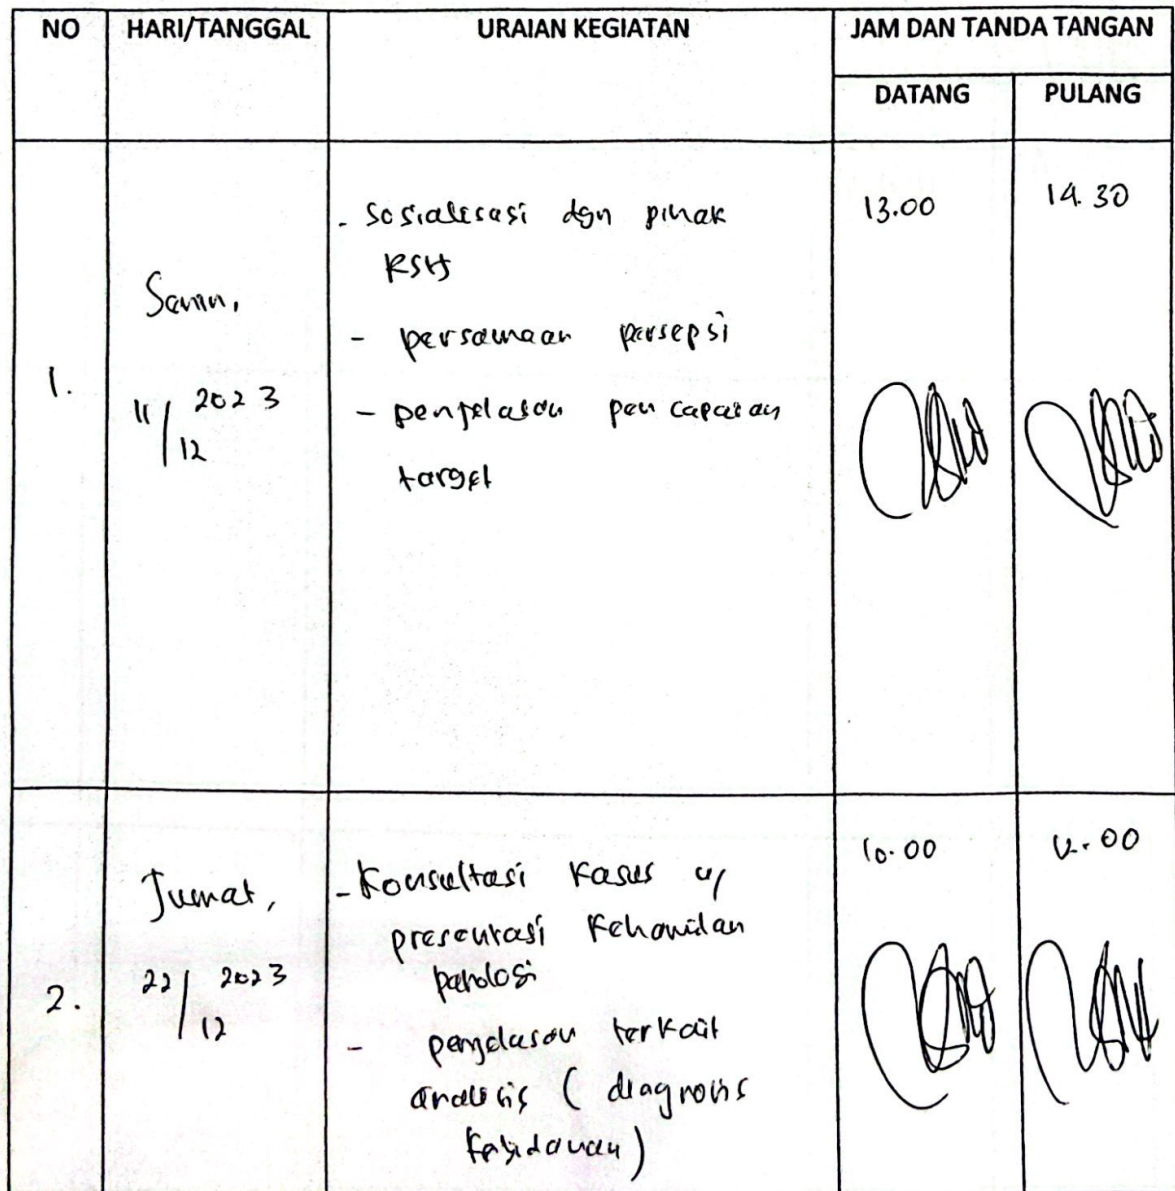 NO HARI/TANGGAL URAIAN KEGIATAN JAM DAN TANDA TANGAN
DATANG PULANG
1.
Senin,
11/12 2023
- Sosialisasi dgn pihak
RSH
- persamaan persepsi
- penjelasan pencapaian
target
13.00 14.30
2.
Jumat,
22/12 2023
- Konsultasi Kasus u/
presentasi Kehamilan
patologi
- penjelasan terkait
analisis ( diagnosis
kebidanan )
10.00 12.00